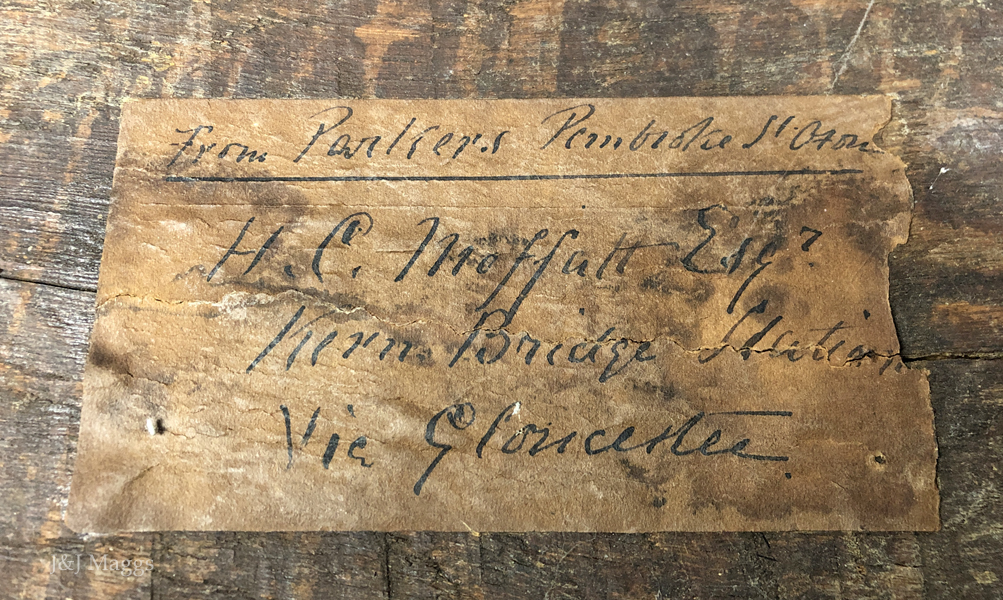 From Parkers Pembroke St. Oxon
H. C. Moffatt Esqr.
Kern Bridge Station
Via Gloucester.
J&J Maggs